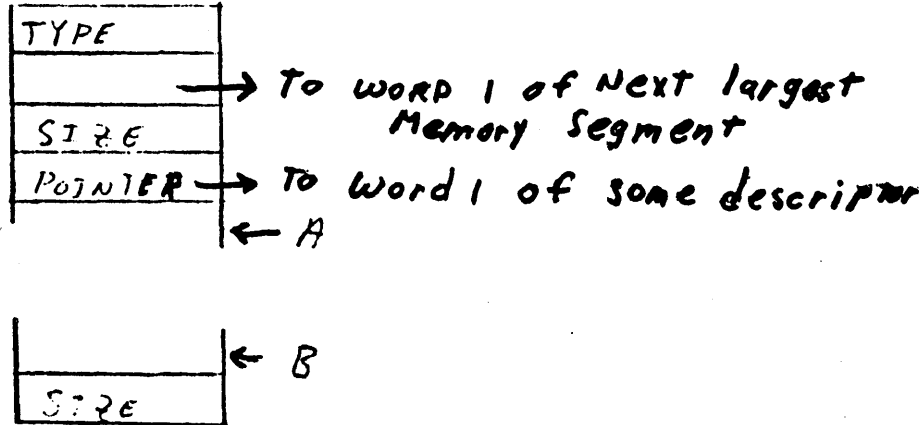 TYPE
To WORD 1 of Next largest
Memory Segment
SIZE
POINTER To Word 1 of some descriptor
A
B
SIZE